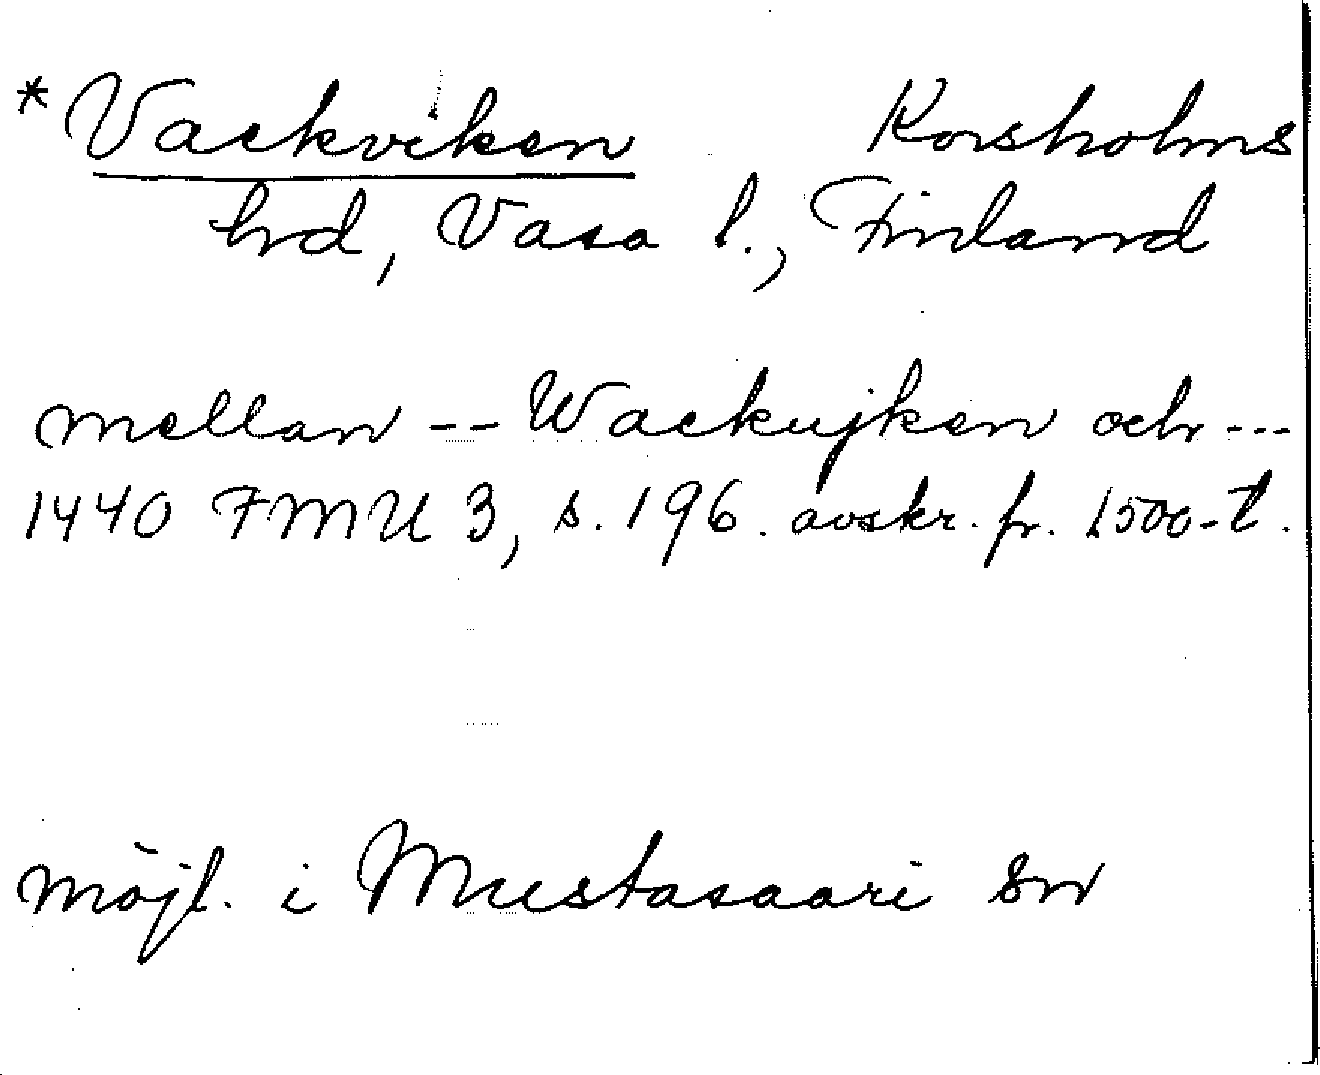 *Vackviken Korsholms
hrd, Vasa l., Finland
mellan -- Wackujken och ---
1440 FMU 3, s. 196. avskr. fr. 1500-t.
möjl. i Mustasaari sn